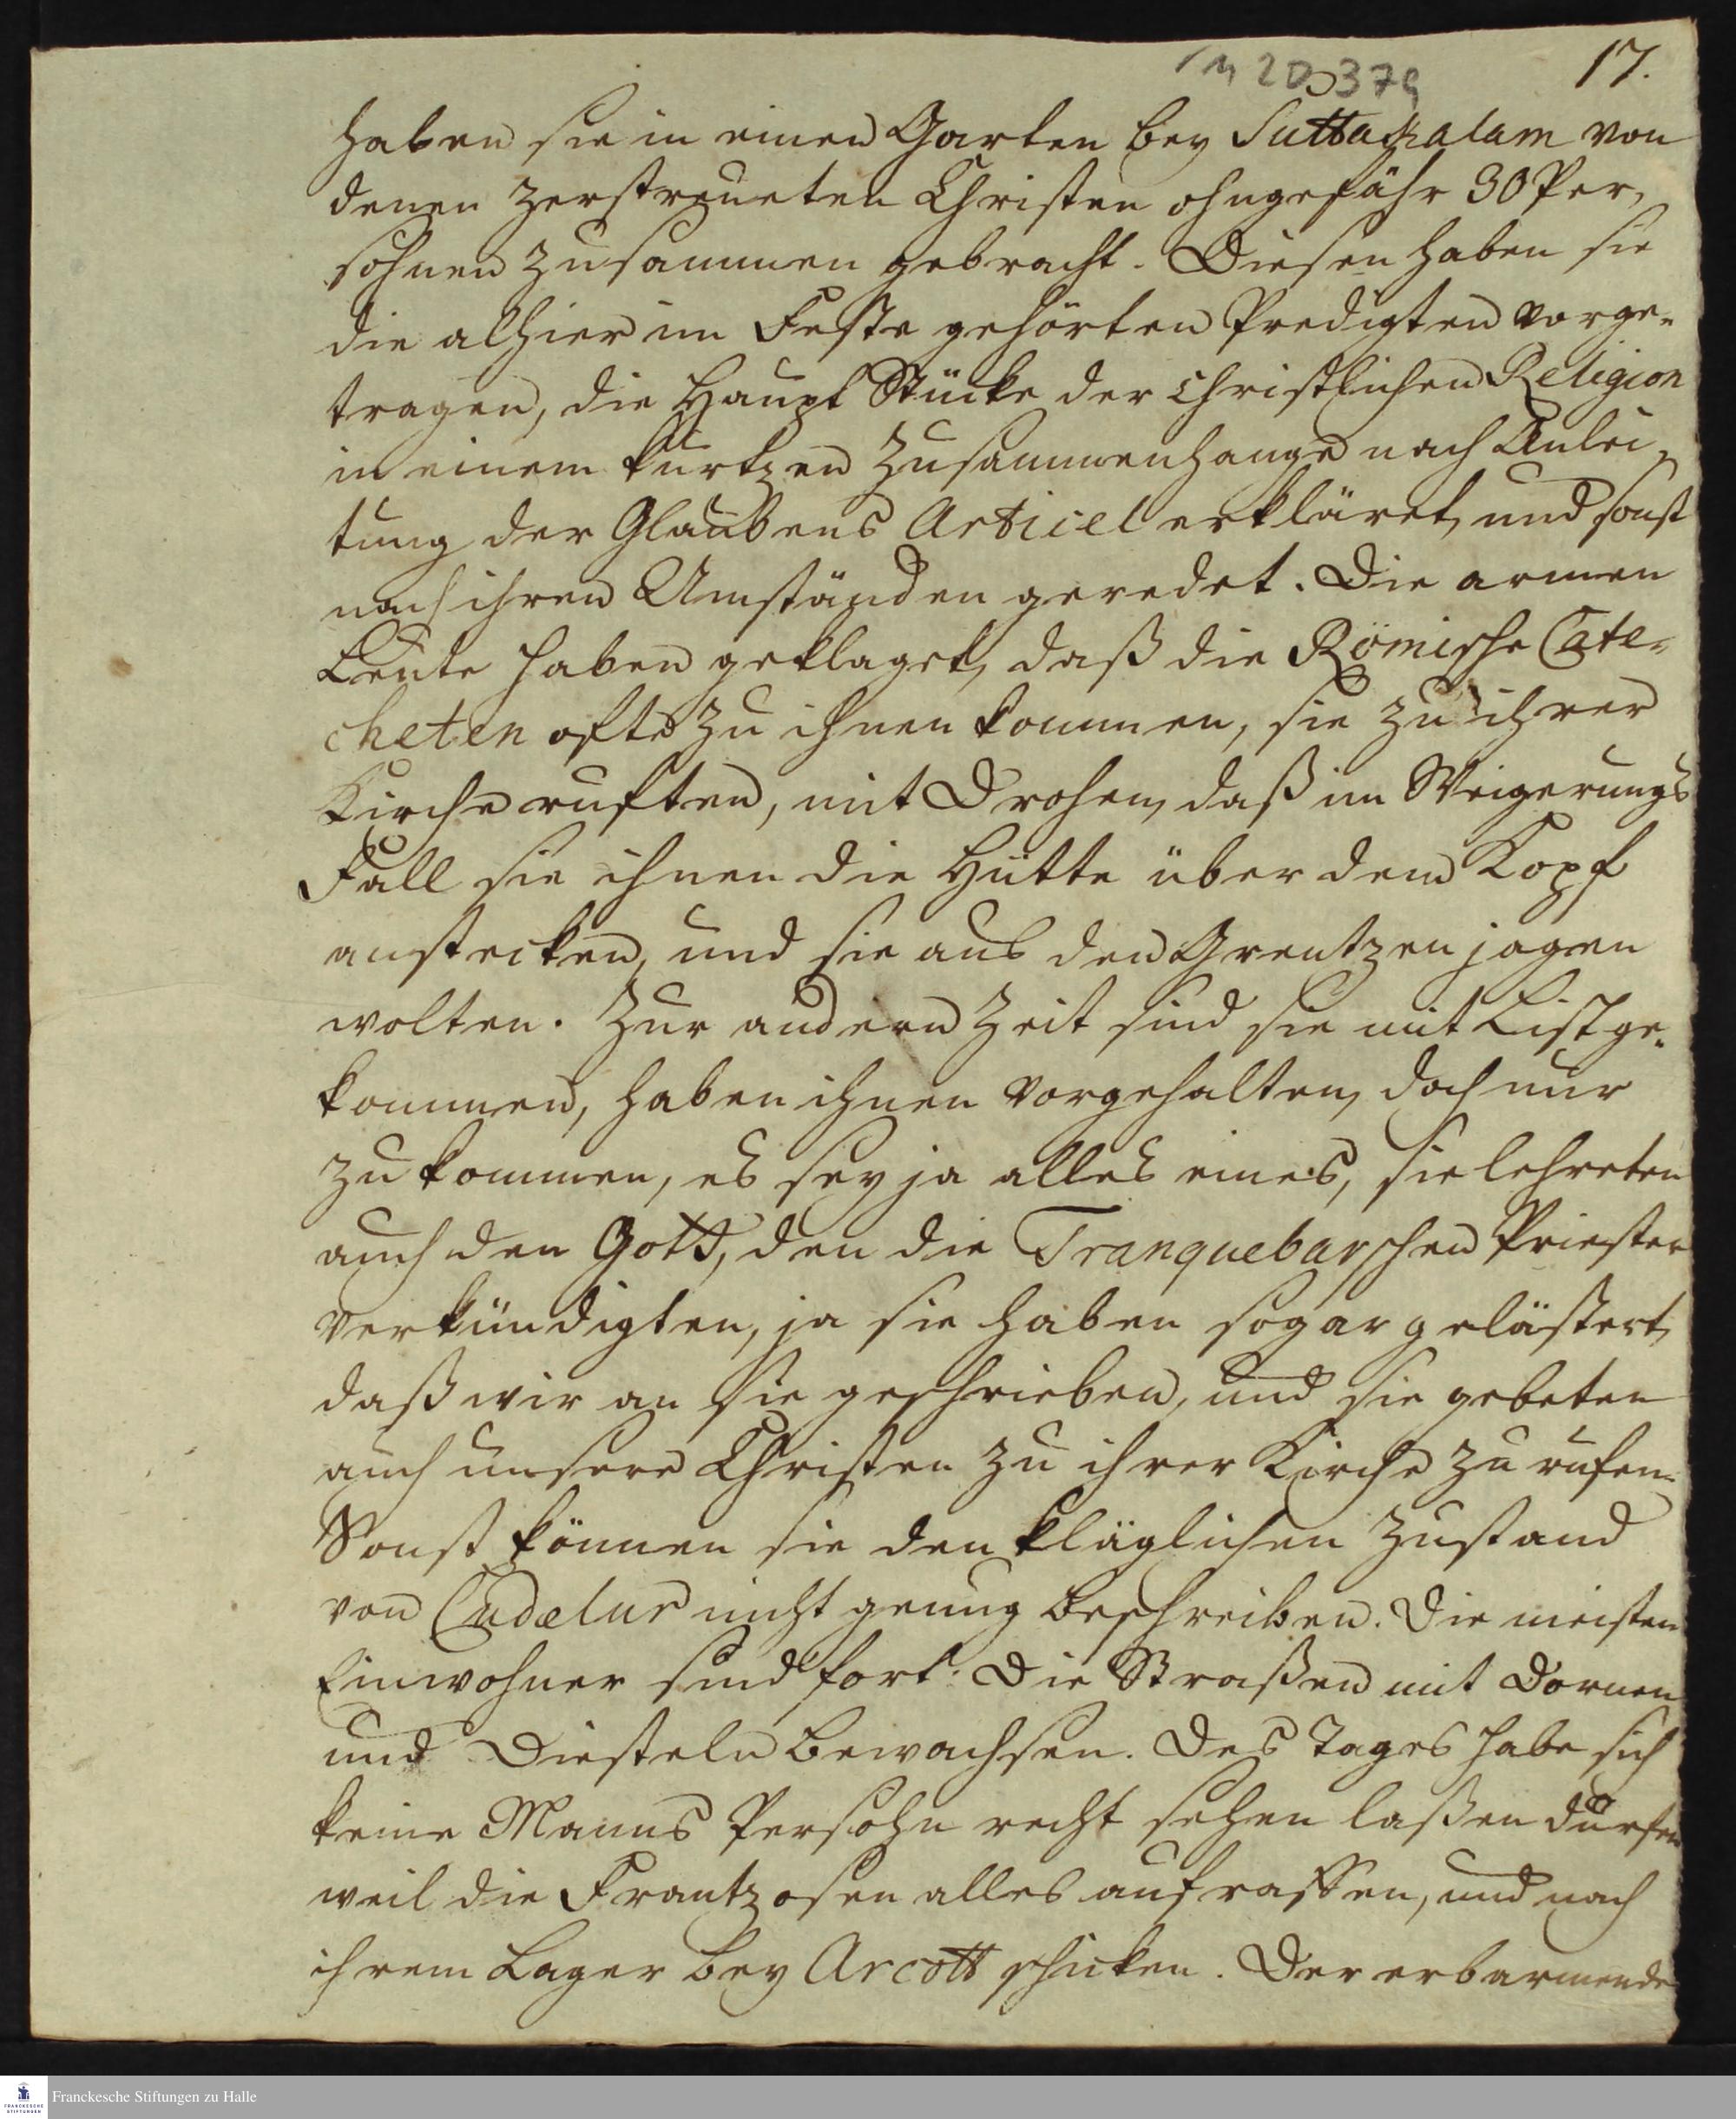 17.
haben sie in einen Garten bey von
denen zerstreueten Christen ohngefähr 30 Per-
sohnen zusammen gebracht. Diesen haben sie
die alhier im Feste gehörten Predigten vorge-
tragen, die Haupt Stücke der christlichen Religion
in einem kurtzen Zusammenhange nach Anlei-
tung der Glaubens Articel erkläret, und sonst
nach ihren Umständen geredet. Die armen
Leute haben geklaget, daß die Römische Cate-
cheten offte zu ihnen kommen, sie zu ihrer
Kirche rufften, mit Drohen, daß im Weigerungs
Fall sie ihnen die Hütte über dem Kopf
anstecken, und sie aus den Grentzen jagen
wolten. Zur andern Zeit sind sie mit List ge-
kommen, haben ihnen vorgehalten, doch nur
zu kommen, es sey ja alles eines, sie lehreten
auch den Gott, den die Tranquebarschen Priester
verkündigten, ja sie haben sogar gelästert,
daß wir an sie geschrieben, und sie gebeten
auch unsere Christen zu ihrer Kirche zu rufen.
Sonst können sie den kläglichen Zustand
von Cudelur nicht genug beschreiben. Die meisten
Einwohner sind fort. Die Straßen mit Dornen
und Diesteln bewachsen. Des Tages habe sich
keine Manns Persohn recht sehen laßen dürfen
weil die Frantzosen alles aufraffen, und nach
ihrem Lager bey Arcott schicken. Der erbarmende
Franckesche Stiftungen zu Halle
FRANCKESCHE
STIFTUNGEN